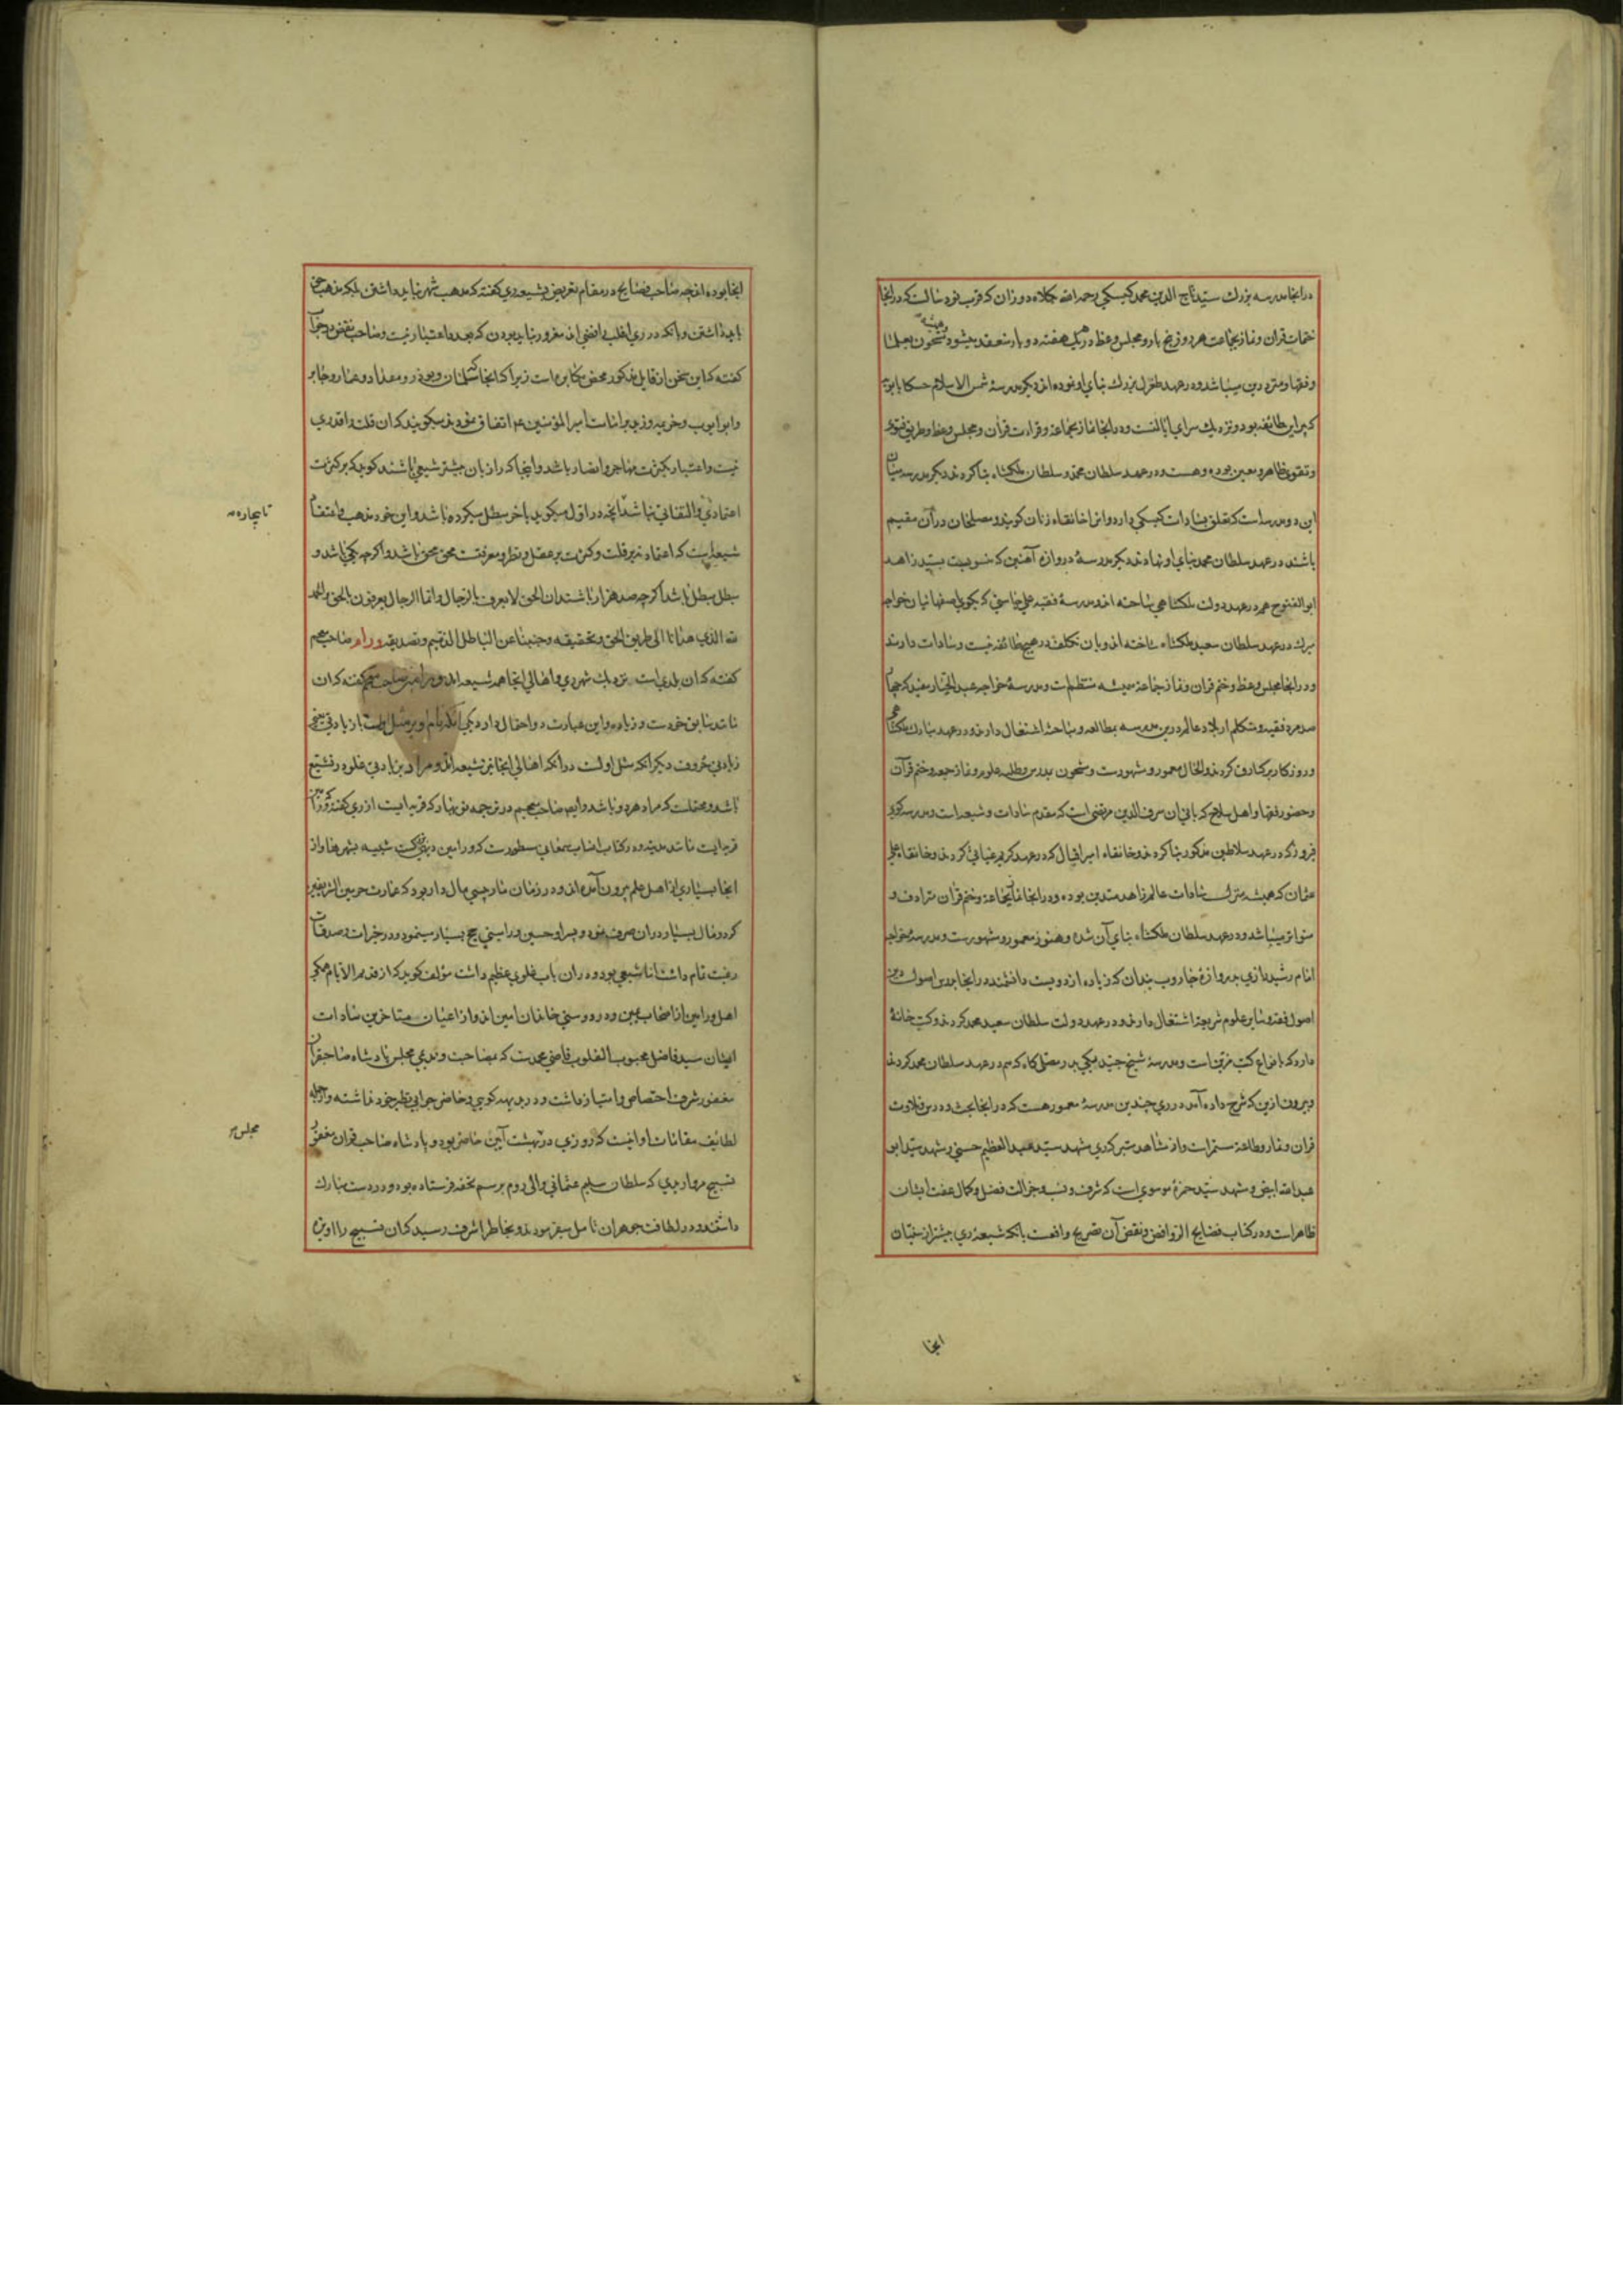 در انجا مدرسه بزرك سید تاج الدین محمد کیسکی رحمه الله بکلاه دوزان که قرب نود سالست که در انجا
ختمات قران و نماز بجماعت هر روز پنج بار و مجلس وعظ در یک هفته دو بار منعقد میشود و مشحون بعلما
و فقها و متردرین میباشد و در عهد طغرل بزرك بنای او نموده اند دیکر مدرسهٔ شمس الاسلام حسکا بابویه
که پیر این طایفه بود و نزدیك سرای ایالتست و در انجا نماز بجماعة و قراءت قران و مجلس وعظ و طریق فتوی
و تقوی ظاهر و معین بوده و هست و در عهد سلطان محمد و سلطان ملکشاه بنا کردند دیکر مدرسه میان
این دو مدرسه است که تعلق بسادات کیسکی دارد و انرا خانقاه زنان کویند و مصلحان در آن مقیم
باشند در عهد سلطان محمد بنای او نهادند دیکر مدرسهٔ دروازه آهنین که منسوبست بسید زاهد
ابو الفتوح هم در عهد دولت ملکشاهی ساخته اند و مدرسهٔ فقیه علی جاسبی که بکوی اصفهانیان خواجه
میرك در عهد سلطان سعید ملکشاه ساخته اند و بان تکلف در هیچ طائفه نیست و سادات دارند
و در انجا مجلس وعظ و ختم قران و نماز جماعة همیشه منتظم است و مدرسهٔ خواجه عبد الجبار مفید که چهار
صد مرد فقیه و متکلم از بلاد عالم درین مدرسه بمطالعه و مباحثه اشتغال دارند و در عهد مبارك ملکشاهی
و روزکار برکیارق کردند و الحال معمور و مشهورست و مشحون بدرس و طلب علوم و نماز جمعه و ختم قرآن
و حضور فقها و اهل صلاح که بانی ان شرف الدین مرتضی است که مقدم سادات و شیعه است و مدرسه کوی
فیروزه که در عهد سلاطین مذکور بنا کردند و خانقاه امیر اقبال که در عهد کریم غیاثی کردند و خانقاه علی
عثمان که همیشه منزل سادات عالم زاهد متدین بوده و در انجا نماز بجماعة و ختم قران مترادف و
متواتر میباشد و در عهد سلطان ملکشاه بنای آن شده و هنوز معمور و مشهورست و مدرسهٔ خواجه
امام رشید رازی بدروازهٔ جاروب بندان که زیاده از دویست دانشمند در انجا بدرس اصول دین
اصول فقه و سایر علوم شریعة اشتغال دارند و در عهد دولت سلطان سعید محمد کردند و کتب خانهٔ
دارد که بانواع کتب مزین است و مدرسهٔ شیخ حیدر مکی بدر مصلی کاه که هم در عهد سلطان محمد کردند
و بیرون ازین که شرح داده آمد در ری چندین مدرسهٔ معمور هست که در انجا بحث و درس و تلاوت
قران و نماز و طاعة مستمر است و از مشاهد متبرکه ری مشهد سید عبد العظیم حسنی و مشهد سید ابو
عبد الله ابیض و مشهد سید حمزهٔ موسوی است که شرف و نسب و جزالت فضل و کمال عفت ایشان
ظاهر است و در کتاب فضایح الروافض و نقض آن تصریح واقعست بانکه شیعهٔ ری بیشتر از سنیان
انجا
انجا بوده اند چه صاحب فضایح در مقام تعریض بشیعه ری کفته که مذهب شهر نباید داشتن بلکه مذهب حق
باید داشتن و انکه در ری اغلب رافضی اند مغرور نباید بودن که بعدد اعتبار نیست و صاحب نقض در جواب
کفته که این سخن از قایل مذکور محض مکابره است زیرا که انجا که سلمان و بوذر و مقداد و عمار و جابر
و ابو ایوب و خزیمه و زید بر امامت امیر المؤمنین ع اتفاق نمودند میکویند که ان قلت را قدری
نیست و اعتبار بکثرت مهاجر و انصار باشد و اینجا که رازیان بیشتر شیعی باشند کوید که بر کثرت
اعتمادی و التفاتی نباشد آنچه در اول میکوید باخر مبطل میکرده باشد و این خود مذهب و اعتقاد
شیعه است که اعتماد نه بر قلت و کثرتست بر عقل و نظر و معرفتست محق محق باشد و اکرچه یکی باشد و
مبطل مبطل باشد اکرچه صد هزار باشند ان الحق لا یعرف بالرجال و انما الرجال یعرفون بالحق و الحمد
لله الذی هدانا الی طریق الحق و تحقیقه و جنبنا عن الباطل الذمیم و تصدیقه ورام صاحب معجم
کفته که ان بلدی است نزدیك شهر ری و اهالی انجا همه شیعه اند و ورامین صاحب معجم کفته که ان
مانند سابق خودست و زیاده و این عبارت دو احتمال دارد یکی آنکه نام او بر مثل اوست با زیادتی یعنی
زیادتی حروف دیکر آنکه مثل اولست در انکه اهالی انجا نیز شیعه اند و مراد بزیادتی غلو در تشیع
باشد و محتملست که مراد هر دو باشد و ایضا صاحب معجم در ترجمه بنی بهار که قریه ایست از ری کفته که ورامین
قریه ایست مانند مدینه و در کتاب انساب سمعانی مسطورست که ورامین دیهی بزرکست شبیه بشهرها و از
انجا بسیاری از اهل علم بیرون آمده اند و در زمان ما رئیسی مال دار بود که عمارت حرمین الشریفین
کرد و مال بسیار در ان صرف نمود و پسر او حسین ورامینی حج بسیار مینمود و در خیرات و صدقات
رغبت تمام داشت اما شیعی بود و در ان باب غلوی عظیم داشت مؤلف کوید که از قدیم الایام همکی
اهل ورامین از اصحاب یمین و در دوستی خاندان امین اند و از اعیان متاخرین سادات
ایشان سید فاضل محبوب القلوب قاضی محمدست که بمصاحبت و ندیمی مجلس پادشاه صاحبقران
مغفور شرف اختصاص و امتیاز داشت و در بدیهه کویی و حاضر جوابی نظیر خود نداشته و از جمله
لطایف مقامات او انست که روزی در بهشت آیین حاضر بود و پادشاه صاحب قران مغفور
تسبیح مرواریدی که سلطان سلیم عثمانی والی روم برسم تحفه فرستاده بود و در دست مبارك
داشتند و در لطافت جوهر ان تامل میفرمودند و بخاطر اشرف رسید که ان تسبیح را اویز
مجلس